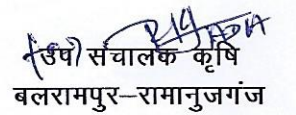 (उप) संचालक कृषि
बलरामपुर–रामानुजगंज